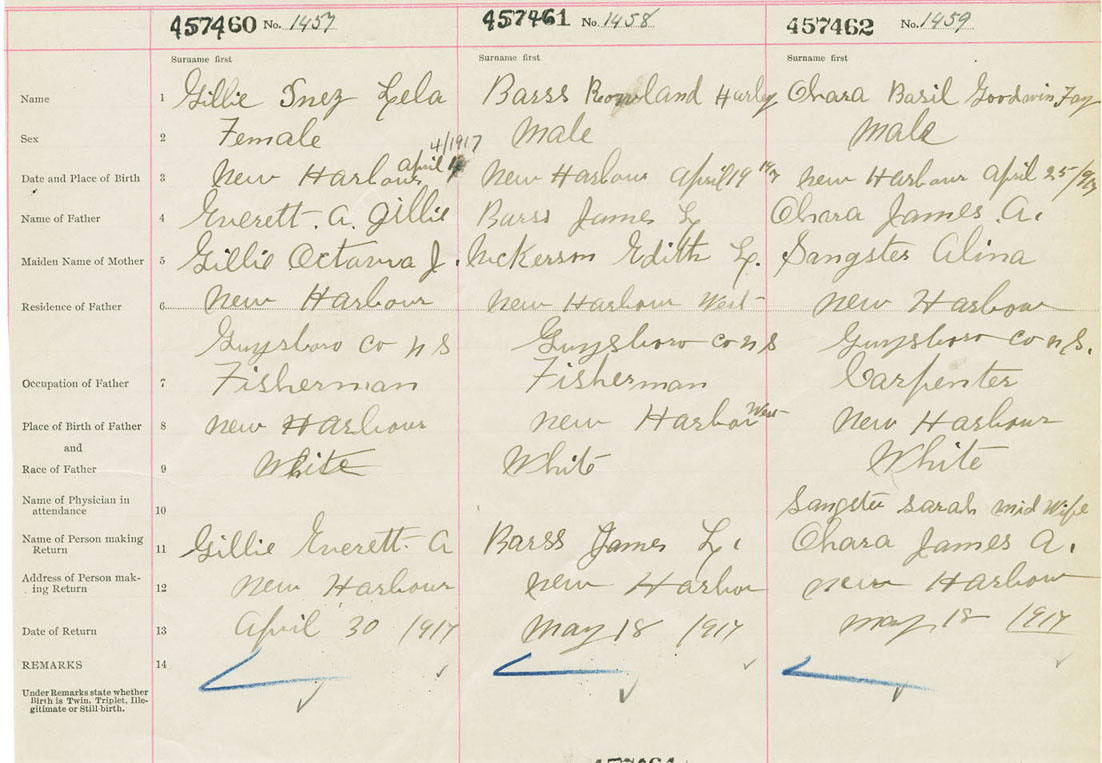 457460 No. 1457 457461 No. 1458 457462 No. 1459
Surname first Surname first Surname first
Name 1 Gillie Inez Lela Barss Rowland Hurley Ohara Basil Goodwin Fay
Sex 2 Female Male Male
4/1917
Date and Place of Birth 3 New Harbour April New Harbour April 19 1917 New Harbour April 25/917
Name of Father 4 Everett. A. Gillie Barss James L Ohara James A.
Maiden Name of Mother 5 Gillie Octavia J. Nickerson Edith L. Sangster Alina
Residence of Father 6 New Harbour New Harbour West New Harbour
Guysboro Co N S Guysboro Co N S Guysboro Co N.S.
Occupation of Father 7 Fisherman Fisherman Carpenter
Place of Birth of Father 8 New Harbour New Harbour West New Harbour
and
Race of Father 9 White White White
Name of Physician in
attendance 10 Sangster Sarah mid Wife
Name of Person making
Return 11 Gillie Everett. A Barss James L. Ohara James A.
Address of Person mak-
ing Return 12 New Harbour New Harbour New Harbour
Date of Return 13 April 30 1917 May 18 1917 May 18 1917
REMARKS 14
Under Remarks state whether
Birth is Twin, Triplet, Ille-
gitimate or Still-birth.